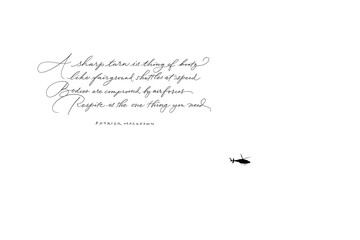 A sharp turn is thing of
like fairground shuttles at speed
Bodies are compromised by airforces
Respite is the one thing you need
PATRICK